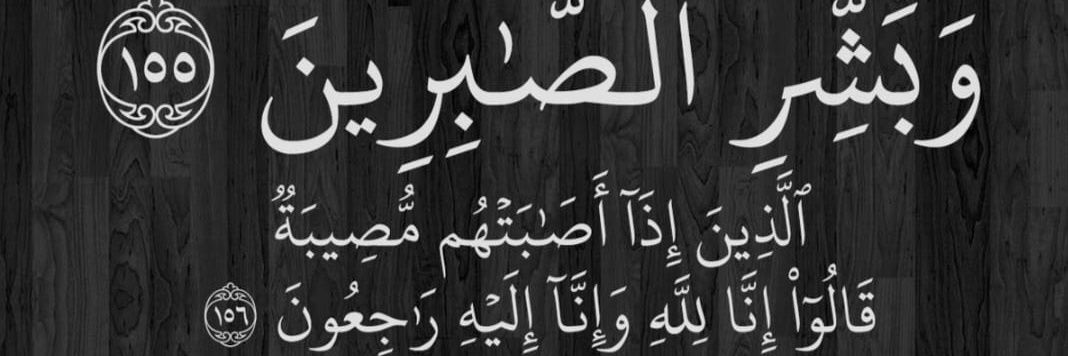 وَبَشِّرِ الصَّٰبِرِينَ ١٥٥
ٱلَّذِينَ إِذَآ أَصَٰبَتۡهُم مُّصِيبَةٞ
قَالُوٓاْ إِنَّا لِلَّهِ وَإِنَّآ إِلَيۡهِ رَٰجِعُونَ ١٥٦